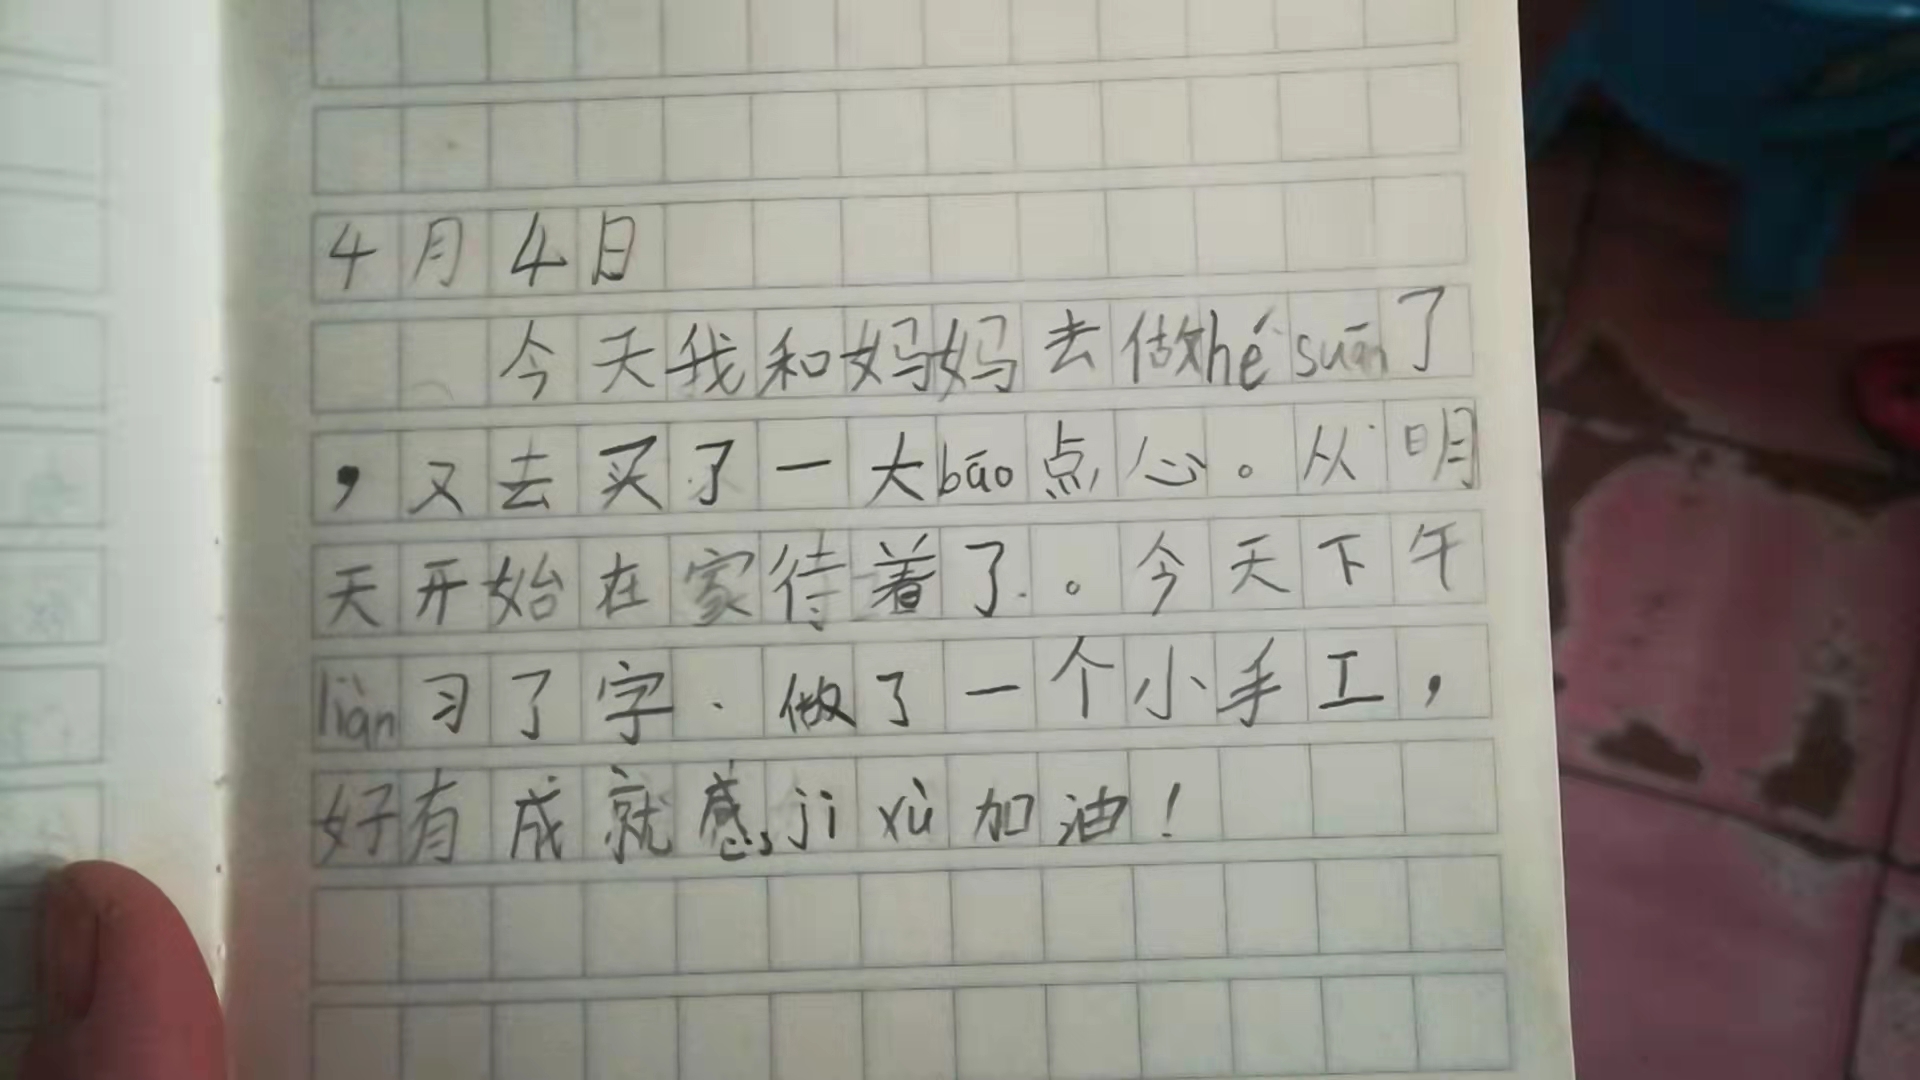 4月4日
今天我和妈妈去做hé suān了
，又去买了一大bāo点心。从明
天开始在家待着了。今天下午
liàn习了字.做了一个小手工，
好有成就感,jì xù加油！